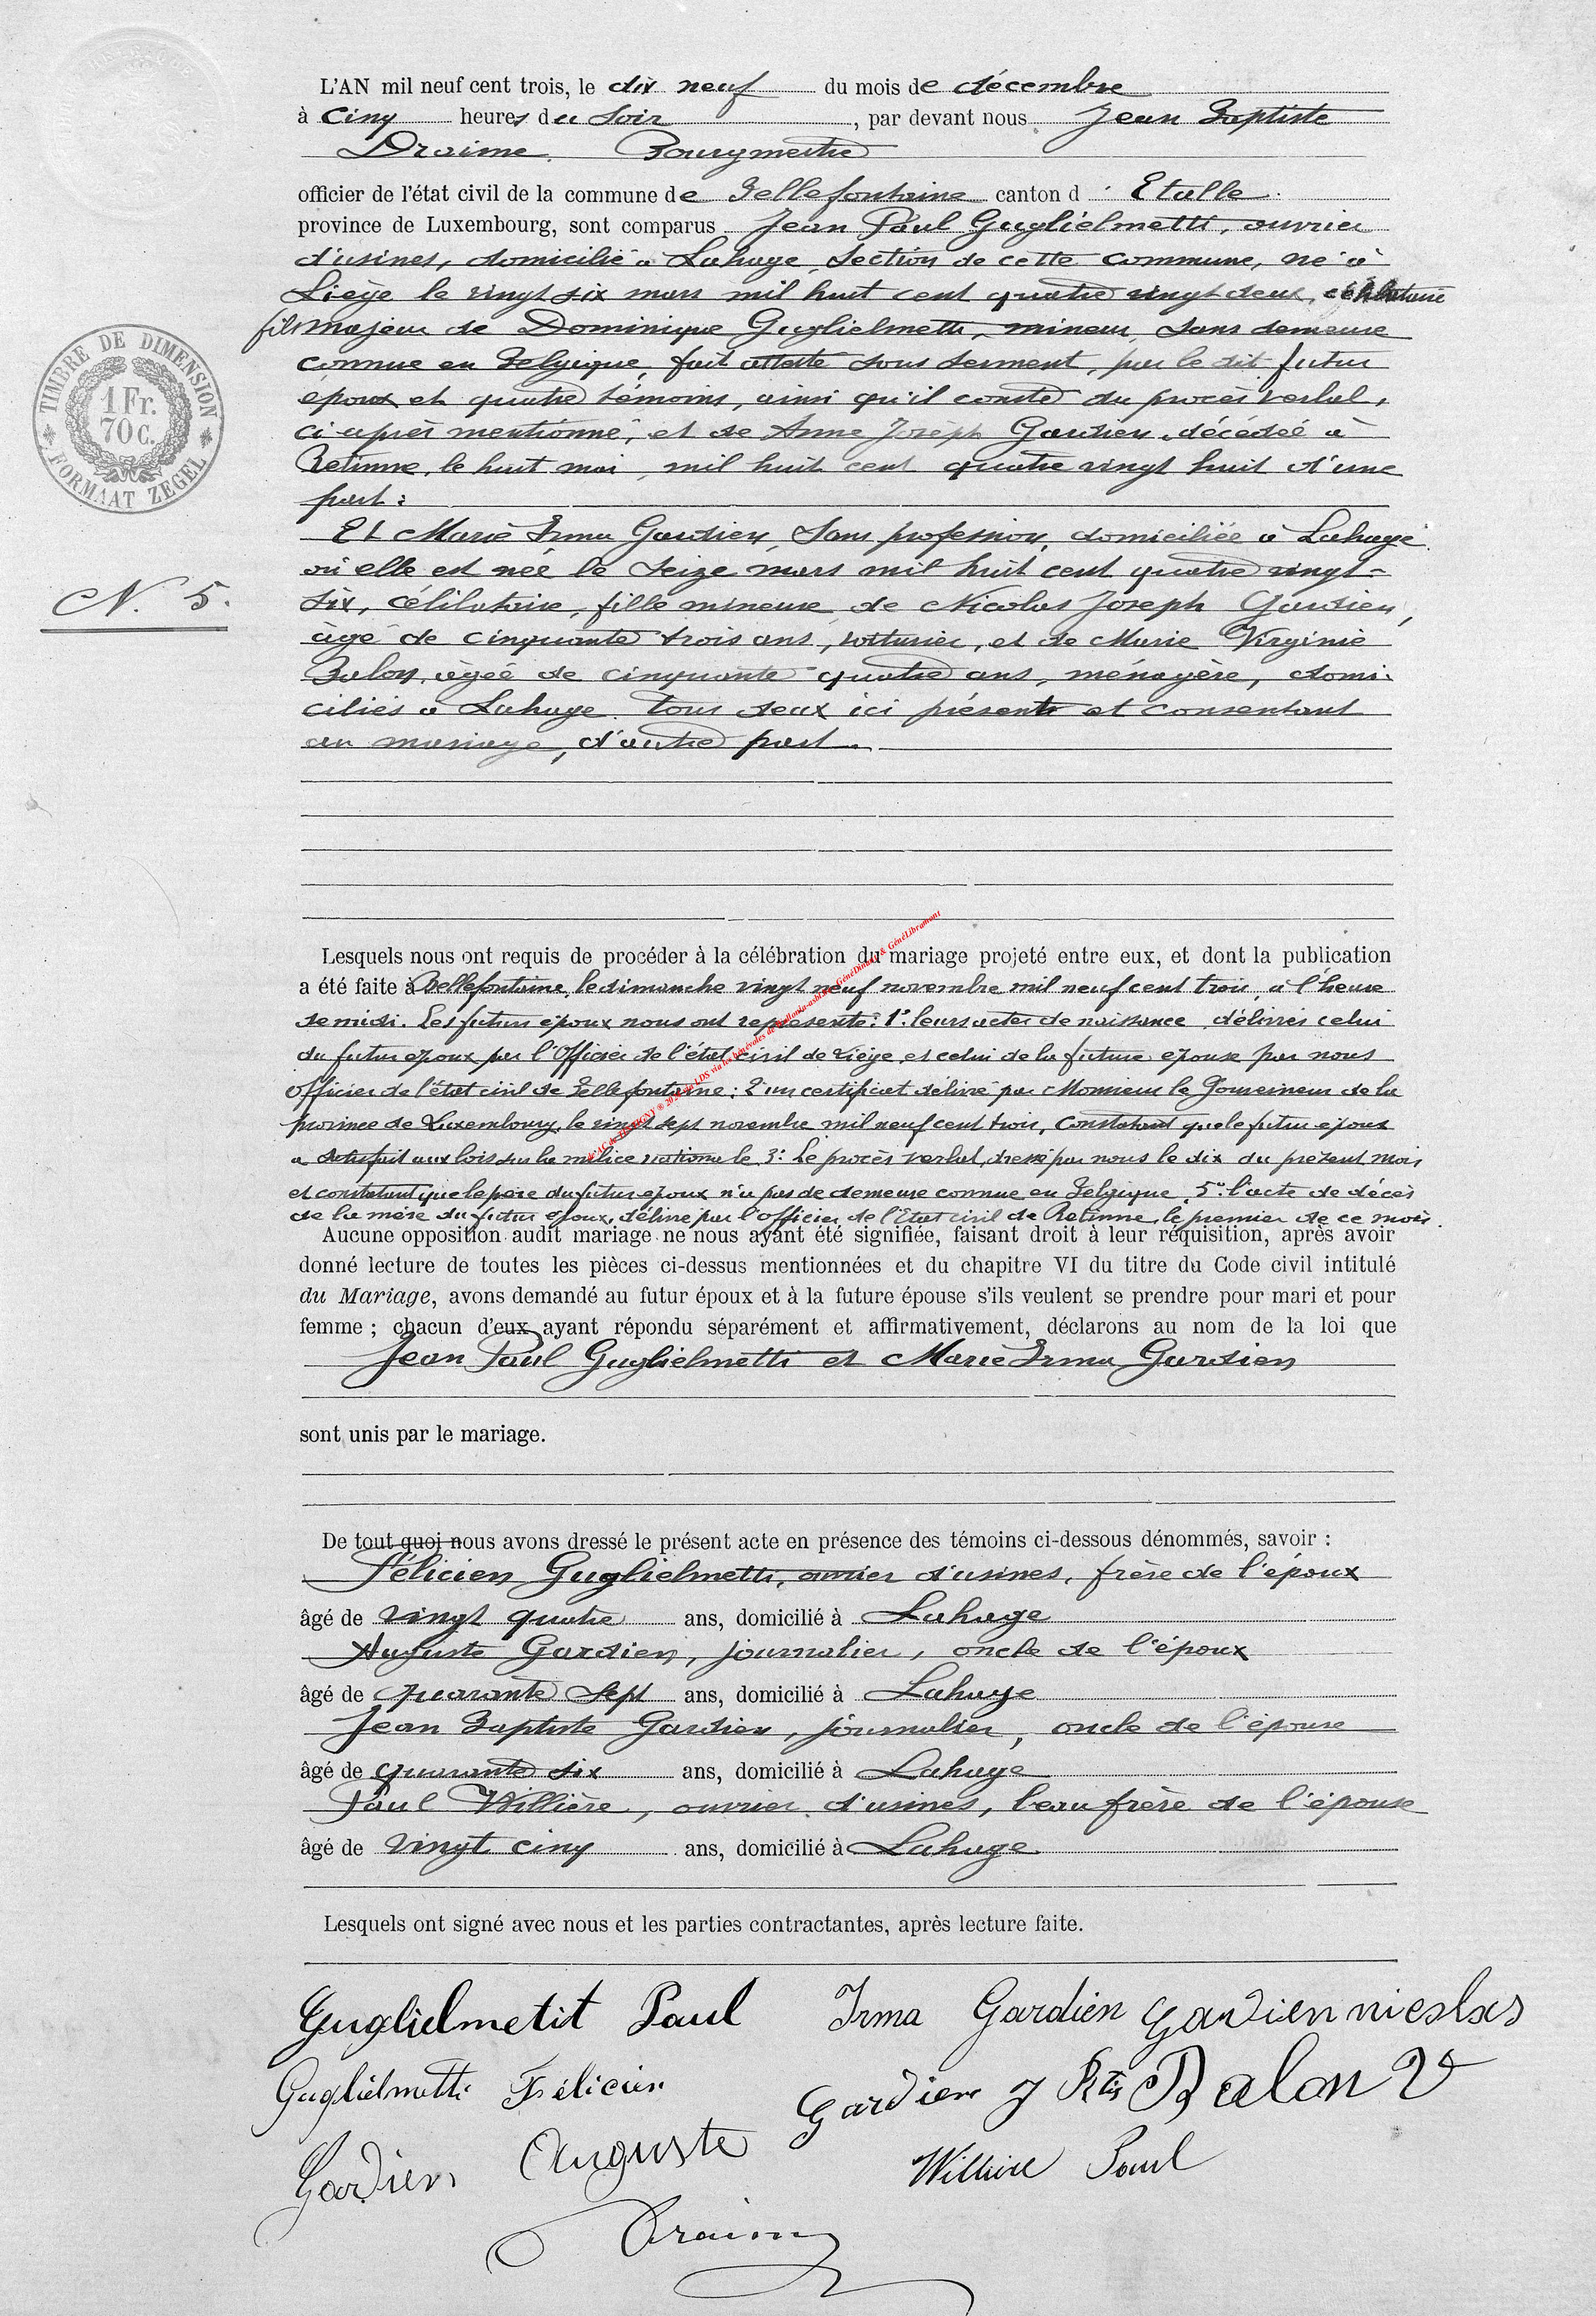 L'AN mil neuf cent trois, le dix neuf du mois de décembre
à cinq heures du soir, par devant nous Jean Baptiste
Draime, Bourgmestre
officier de l'état civil de la commune de Bellefontaine canton d' Etalle
province de Luxembourg, sont comparus Jean Paul Guglielmetti, ouvrier
d'usines, domicilié à Lahage, section de cette commune, né à
Liège le vingt six mars mil huit cent quatre vingt deux, célibataire
fils majeur de Dominique Guglielmetti, mineur, sans demeure
connue en Belgique, fait attesté sous serment, par le dit futur
époux et quatre témoins, ainsi qu'il conste du procès verbal,
ci-après mentionné, et de Anne Joseph Gardien, décédée à
Retinne, le huit mai, mil huit cent quatre vingt huit d'une
part :
Et Marie Irma Gardien, sans profession, domiciliée à Lahage
où elle est née le seize mars mil huit cent quatre vingt-
six, célibataire, fille mineure de Nicolas Joseph Gardien,
âgé de cinquante trois ans, voiturier, et de Marie Virginie
Balon, âgée de cinquante quatre ans, ménagère, domi-
ciliés à Lahage tous deux ici présents et consentant
au mariage, d'autre part.
N. 5.
TIMBRE DE DIMENSION
1 Fr.
70 C.
FORMAAT ZEGEL
Lesquels nous ont requis de procéder à la célébration du mariage projeté entre eux, et dont la publication
a été faite à Bellefontaine, le dimanche vingt neuf novembre mil neuf cent trois, à l'heure
de midi. Les futurs époux nous ont représenté : 1° leurs actes de naissance, délivrés celui
du futur époux par l'Officier de l'état civil de Liège, et celui de la future épouse par nous
officier de l'état civil de Bellefontaine ; 2° un certificat délivré par Monsieur le Gouverneur de la
province de Luxembourg, le vingt sept novembre mil neuf cent trois, constatant que le futur époux
a satisfait aux lois sur la milice nationale 3° Le procès verbal, dressé par nous le dix du présent mois
et constatant que le père du futur époux n'a pas de demeure connue en Belgique, 5° l'acte de décès
de la mère du futur époux, délivré par l'officier de l'Etat civil de Retinne, le premier de ce mois.
Aucune opposition audit mariage ne nous ayant été signifiée, faisant droit à leur réquisition, après avoir
donné lecture de toutes les pièces ci-dessus mentionnées et du chapitre VI du titre du Code civil intitulé
du Mariage, avons demandé au futur époux et à la future épouse s'ils veulent se prendre pour mari et pour
femme ; chacun d'eux ayant répondu séparément et affirmativement, déclarons au nom de la loi que
Jean Paul Guglielmetti et Marie Irma Gardien
sont unis par le mariage.
De tout quoi nous avons dressé le présent acte en présence des témoins ci-dessous dénommés, savoir :
Félicien Guglielmetti, ouvrier d'usines, frère de l'époux
âgé de vingt quatre ans, domicilié à Lahage
Auguste Gardien, journalier, oncle de l'époux
âgé de quarante sept ans, domicilié à Lahage
Jean Baptiste Gardien, journalier, oncle de l'épouse
âgé de quarante six ans, domicilié à Lahage
Paul Willière, ouvrier d'usines, beau frère de l'épouse
âgé de vingt cinq ans, domicilié à Lahage
Lesquels ont signé avec nous et les parties contractantes, après lecture faite.
Guglielmetit Paul Irma Gardien Gardien nicolas
Guglielmetti Félicien Gardien J Bte Balon V
Gardien Auguste Willière Paul
Draime